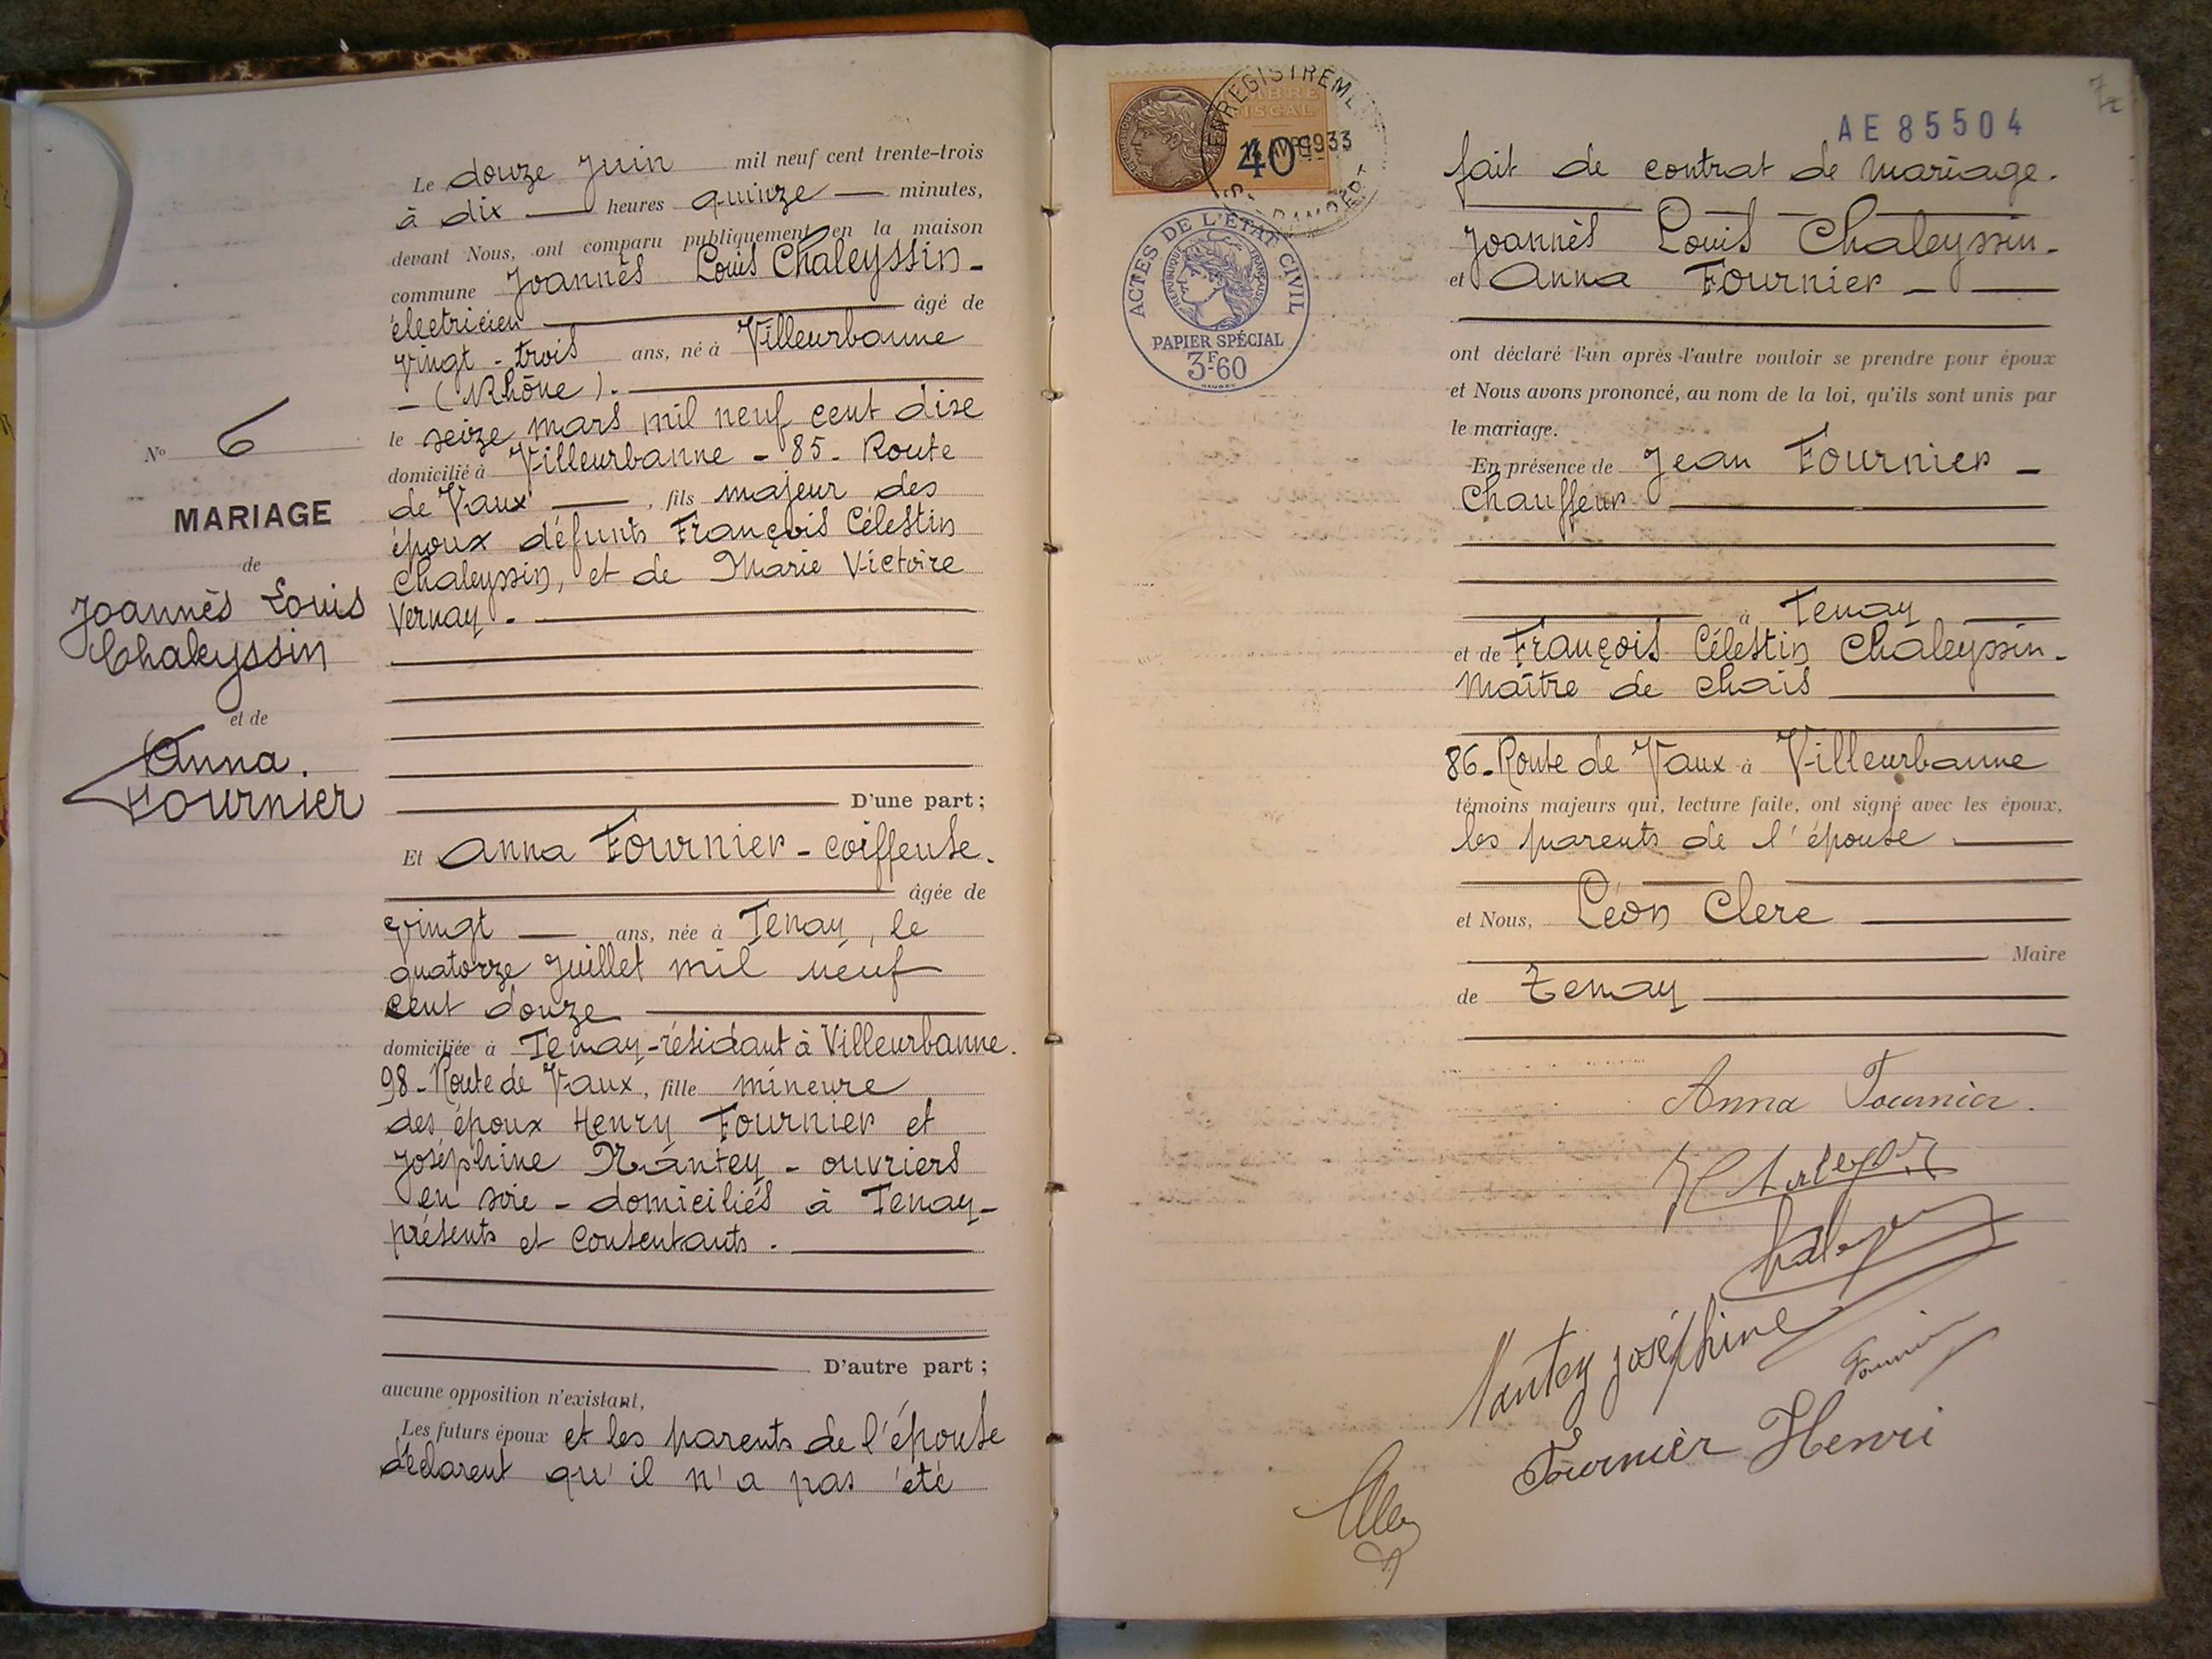 Le douze Juin mil neuf cent trente-trois
à dix heures quinze minutes,
devant Nous, ont comparu publiquement en la maison
commune Joannès Louis Chaleyssin -
électricien âgé de
vingt - trois ans, né à Villeurbanne
- (Rhône).
le seize mars mil neuf cent dix
domicilié à Villeurbanne - 85 - Route
de Vaux, fils majeur des
époux défunts François Célestin
Chaleyssin, et de Marie Victoire
Vernay.
D'une part;
Et Anna Fournier - coiffeuse.
âgée de
vingt ans, née à Tenay, le
quatorze Juillet mil neuf
cent douze
domiciliée à Tenay - résidant à Villeurbanne.
98 - Route de Vaux, fille mineure
des époux Henry Fournier et
Joséphine Nantey - ouvriers
en soie - domiciliés à Tenay -
présents et consentants.
D'autre part;
aucune opposition n'existant,
Les futurs époux et les parents de l'épouse
déclarent qu'il n'a pas été
No 6
MARIAGE
de
Joannès Louis
Chaleyssin
et de
Anna.
Fournier
ENREGISTREMENT
TIMBRE
FISCAL
40
1933
ACTES DE L'ÉTAT CIVIL
RÉPUBLIQUE FRANÇAISE
PAPIER SPÉCIAL
3F.60
AE 85504
fait de contrat de mariage.
Joannès Louis Chaleyssin -
et Anna Fournier -
ont déclaré l'un après l'autre vouloir se prendre pour époux
et Nous avons prononcé, au nom de la loi, qu'ils sont unis par
le mariage.
En présence de Jean Fournier -
Chauffeur
à Tenay
et de François Célestin Chaleyssin -
Maître de chais
86 - Route de Vaux à Villeurbanne
témoins majeurs qui, lecture faite, ont signé avec les époux,
les parents de l'épouse
et Nous, Léon Clerc
Maire
de Tenay
Anna Fournier.
Nantey Joséphine
Fournier
Fournier Henri